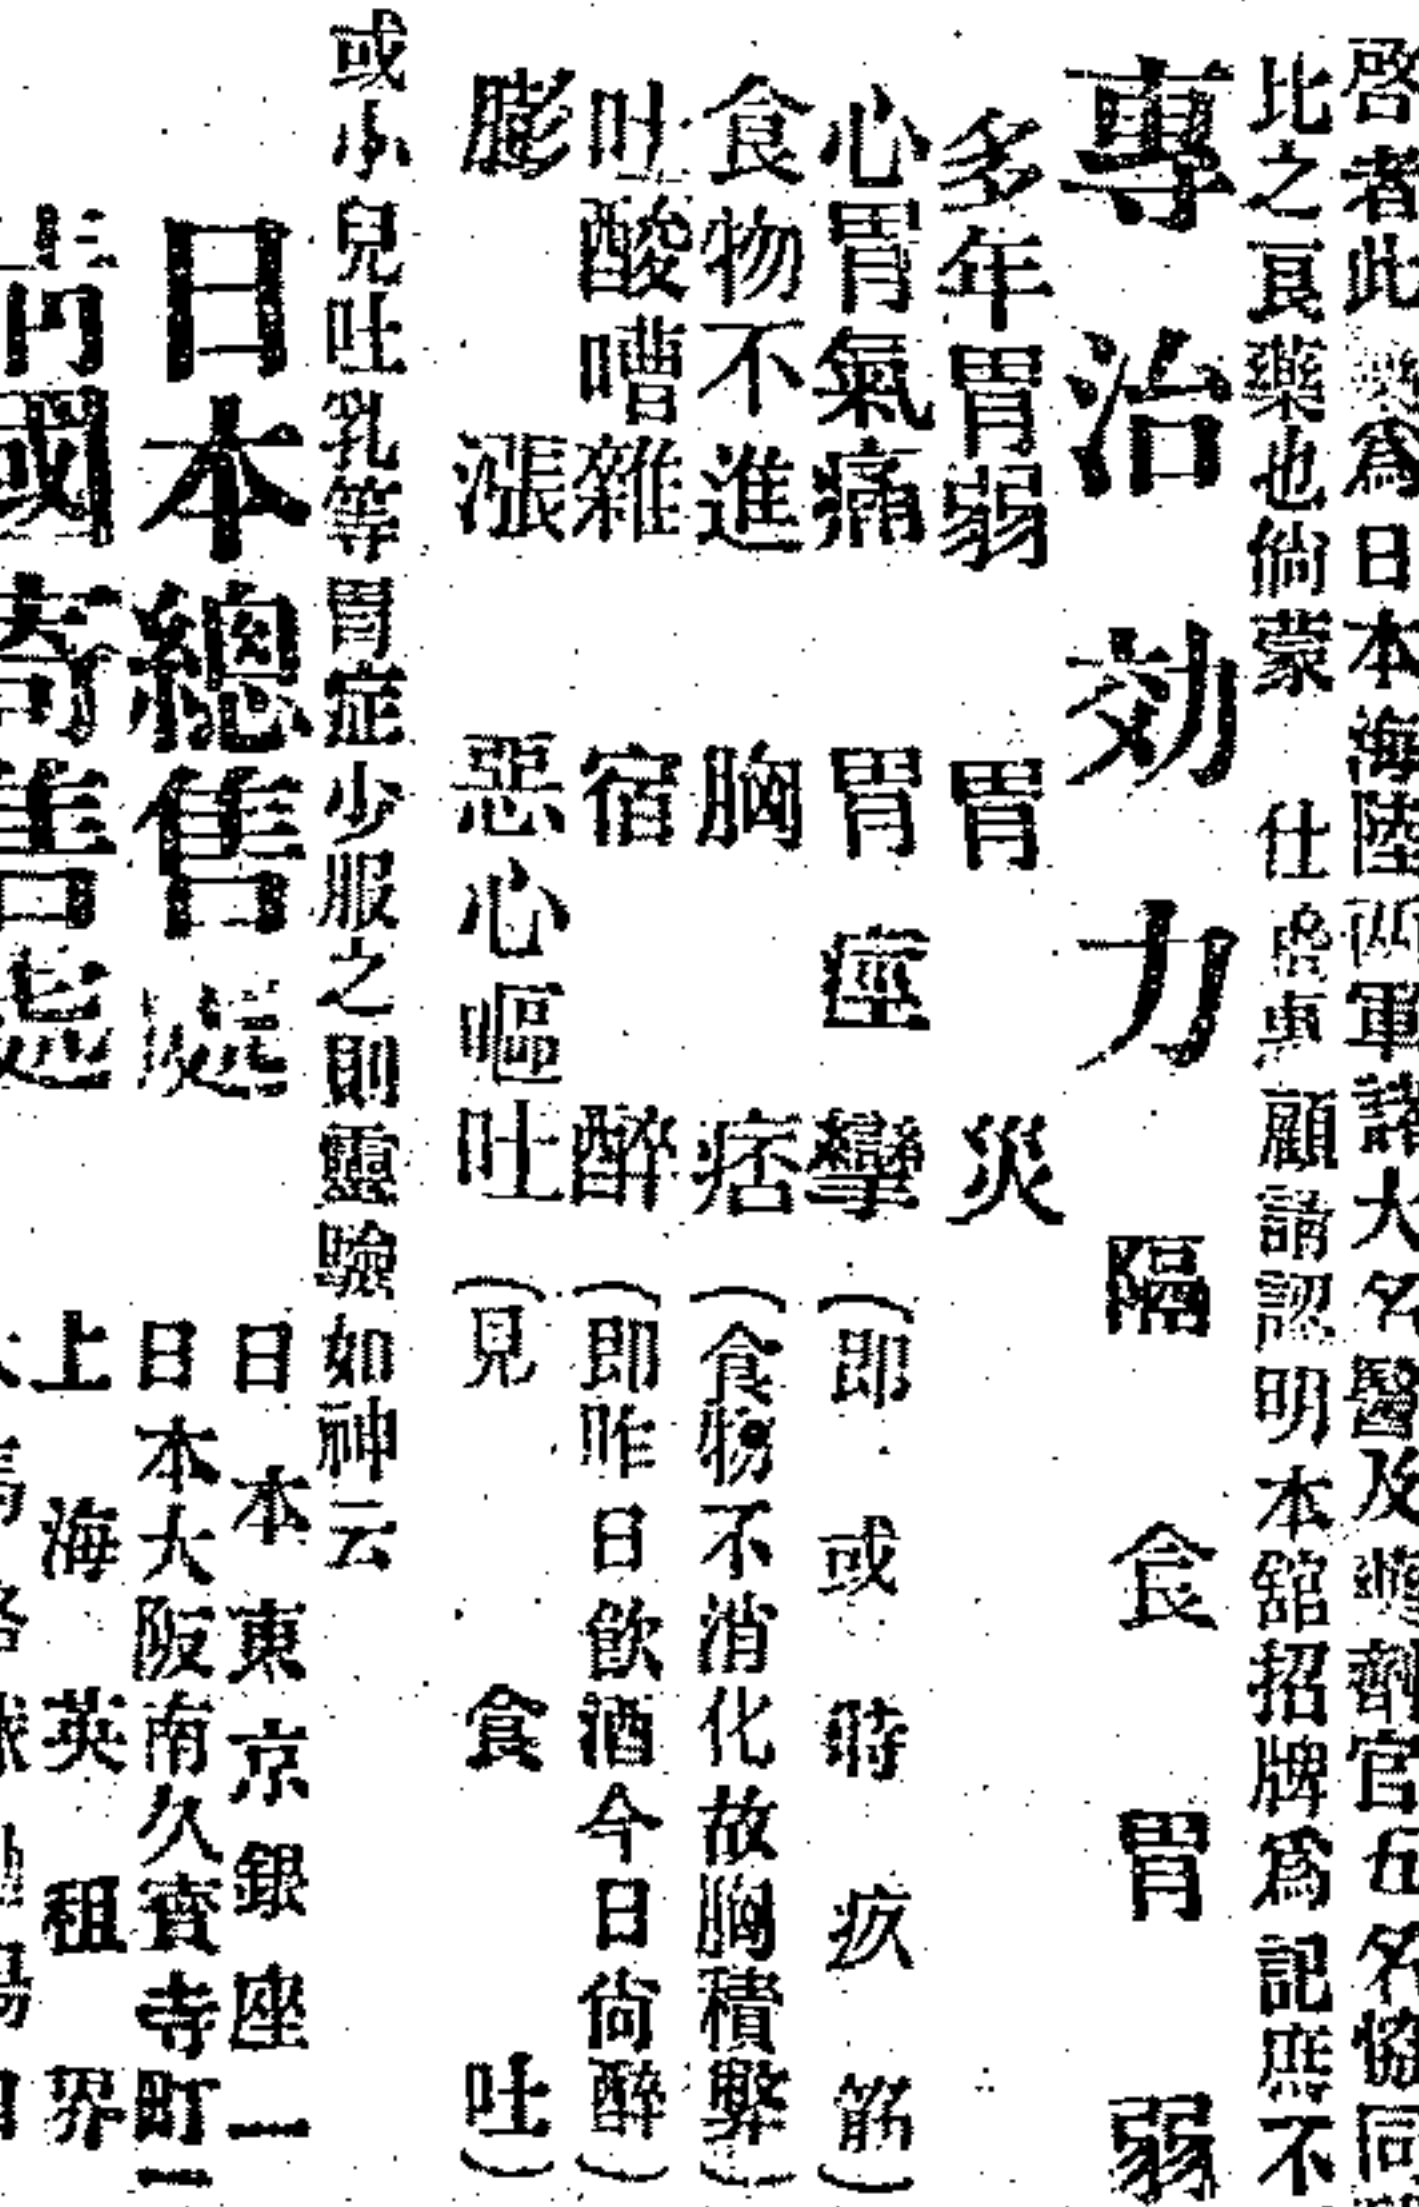 啓者此 爲日本海陸兩軍諸大名醫及 劑官五名協同
比之良藥也倘蒙 仕 顧請認明本舘招牌爲記庶不
專治効力 隔食胃弱
多年胃弱 胃災
心胃氣痛 胃痙攣(即或時疚筋)
食物不進 胸痞(食物不消化故胸積弊)
吐酸嘈雜 宿醉(即昨日飮酒今日尙醉)
膨漲 惡心嘔吐(見食吐)
或小兒吐乳等胃症少服之則靈驗如神云
日本總售處 日本東京銀座一
日本大阪南久寳寺町
清國寄售處 上海英租界